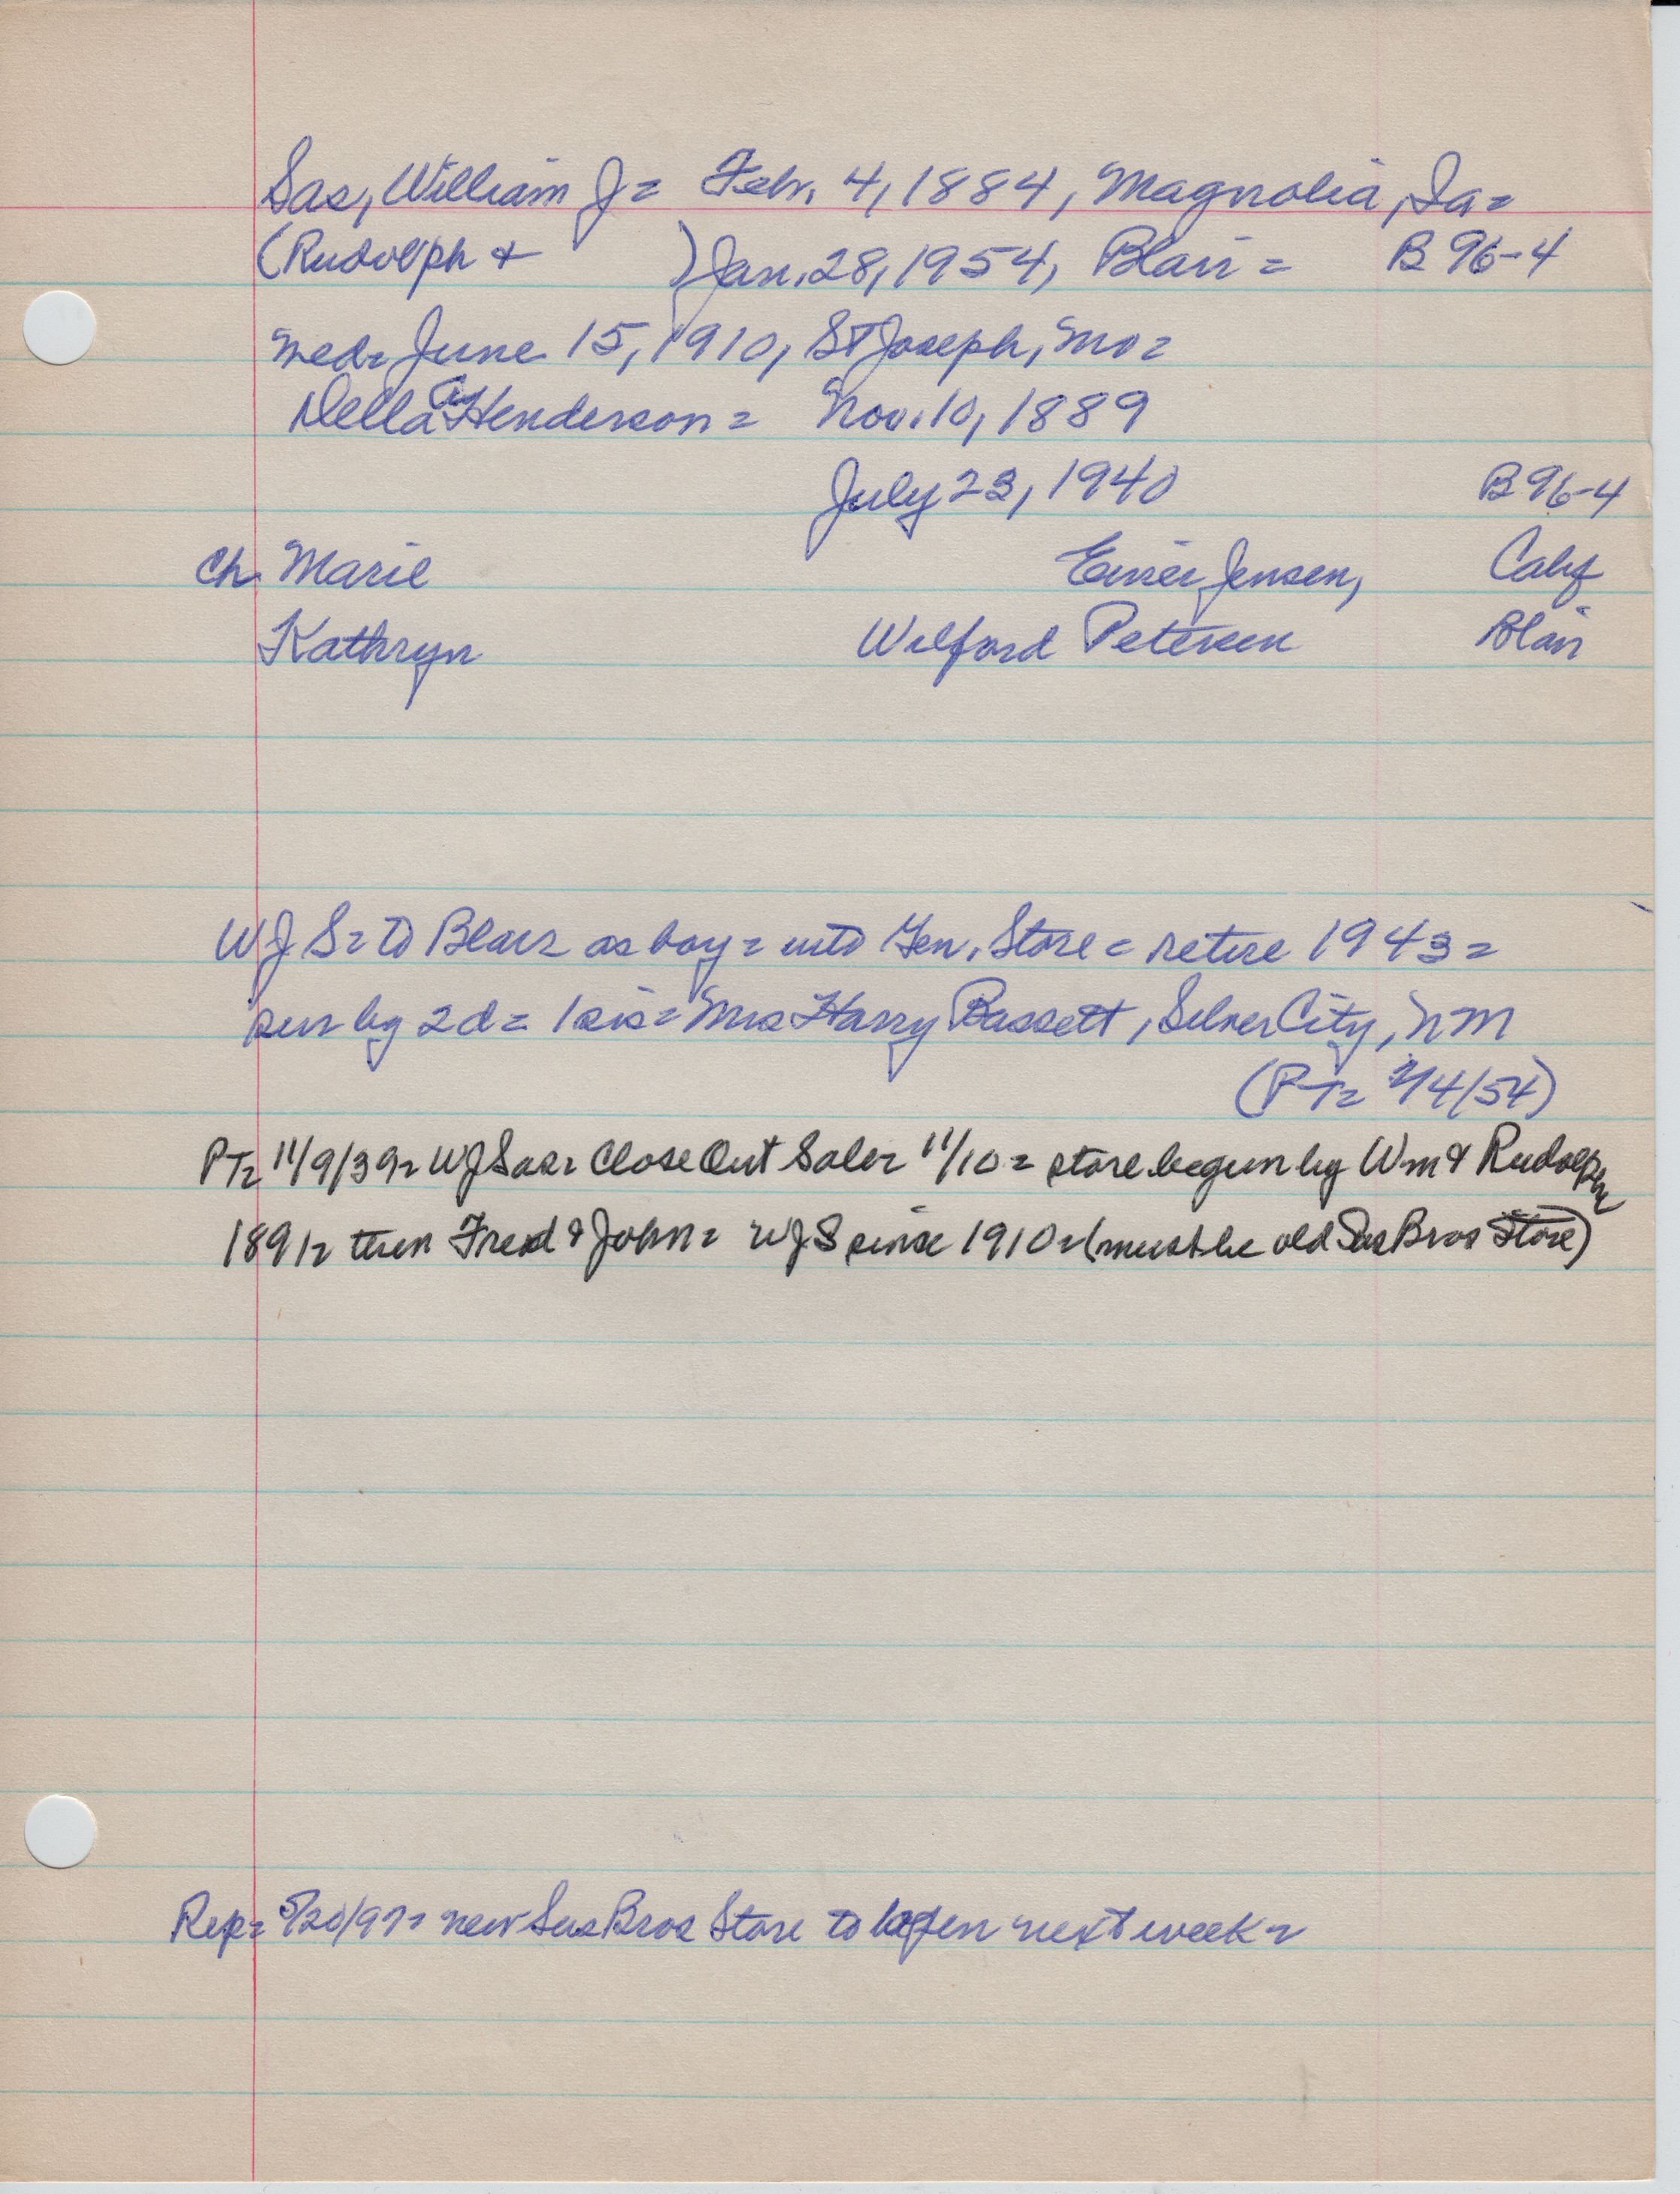 Sas, William J = Febr. 4, 1884, Magnolia, Ia =
(Rudolph + ) Jan. 28, 1954, Blair = B 96-4
med = June 15, 1910, St Joseph, Mo =
Della Henderson = Nov. 10, 1889
July 23, 1940 B 96-4
Ch. Marie Einer Jensen, Calif
Kathryn Wilford Petersen Blair
WJS = to Blair as boy = into Gen. Store = retire 1943 =
sur by 2d = 1 sis = Mrs Harry Bassett, Silver City, NM
(PT = 2/4/54)
PT = 11/9/39 = WJ Sas = Close Out Sale = 11/10 = store begun by Wm & Rudolph
1891 = then Fred & John = WJS since 1910 = (must be old Sas Bros Store)
Rep = 5/20/97 = new Sas Bros Store to open next week =